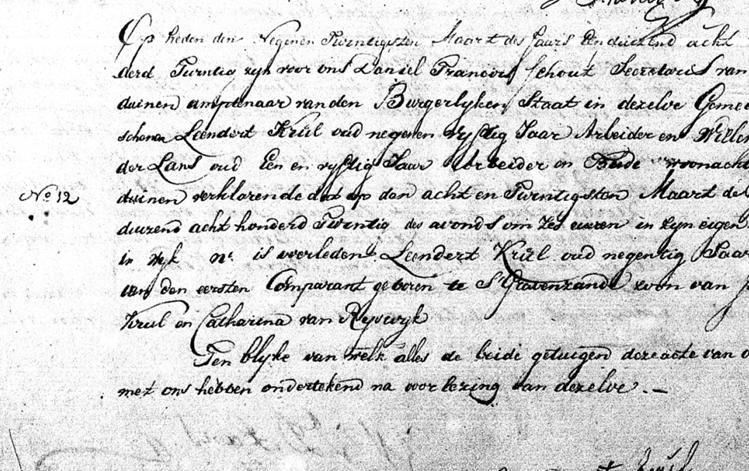 Op heden den Negenen Twintigsten Maart des Jaars Eenduizend acht
derd Twintig zyn voor ons Daniel Francois Schout Secretaris van
duinen amptenaar van den Burgerlyken Staat in dezelve Gemee
schenen Leendert Krul oud negenen vyftig Jaar Arbeider en Wille
der Lans oud Een en vyftig Jaar Arbeider en Beide woonacht
No 12
duinen verklarende dat op den acht en Twintigsten Maart de
duizend acht honderd Twintig des avonds om zes uuren in zyn eigen
in wyk no. is overleden Leendert Krul oud negentig Jaar
van den eersten Comparant geboren te S Gravenzande zoon van
Krul en Catharina van Ryswyk
Ten blyke van welk alles de beide getuigen deze acte van
met ons hebben ondertekend na voorlezing van dezelve. —